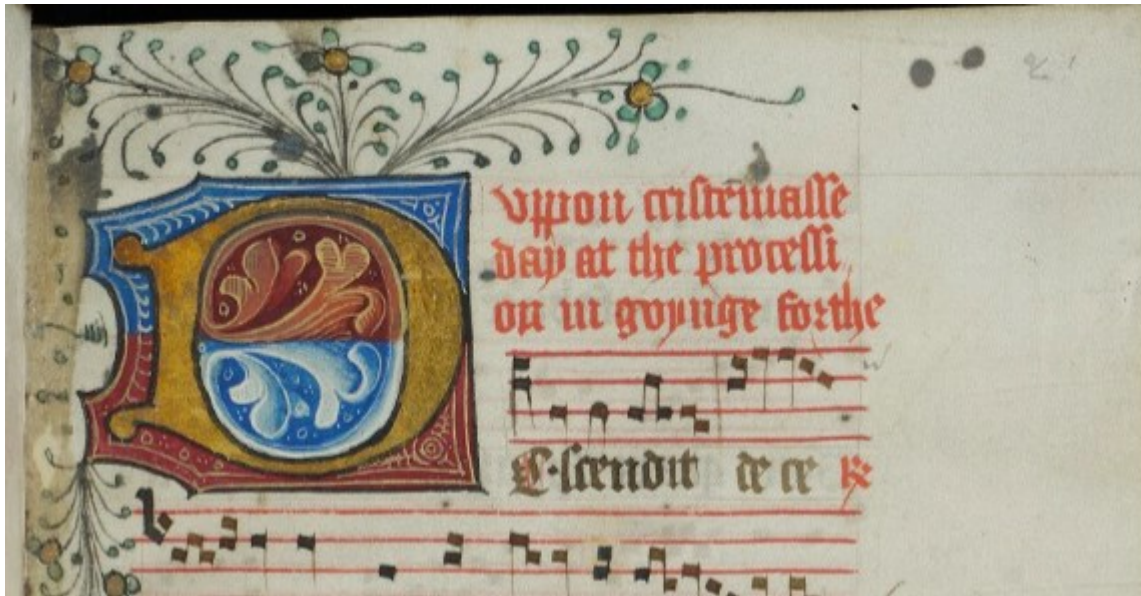 vppon cristemasse
day at the processi
on in goynge forthe
DE·scendit de ce ℟